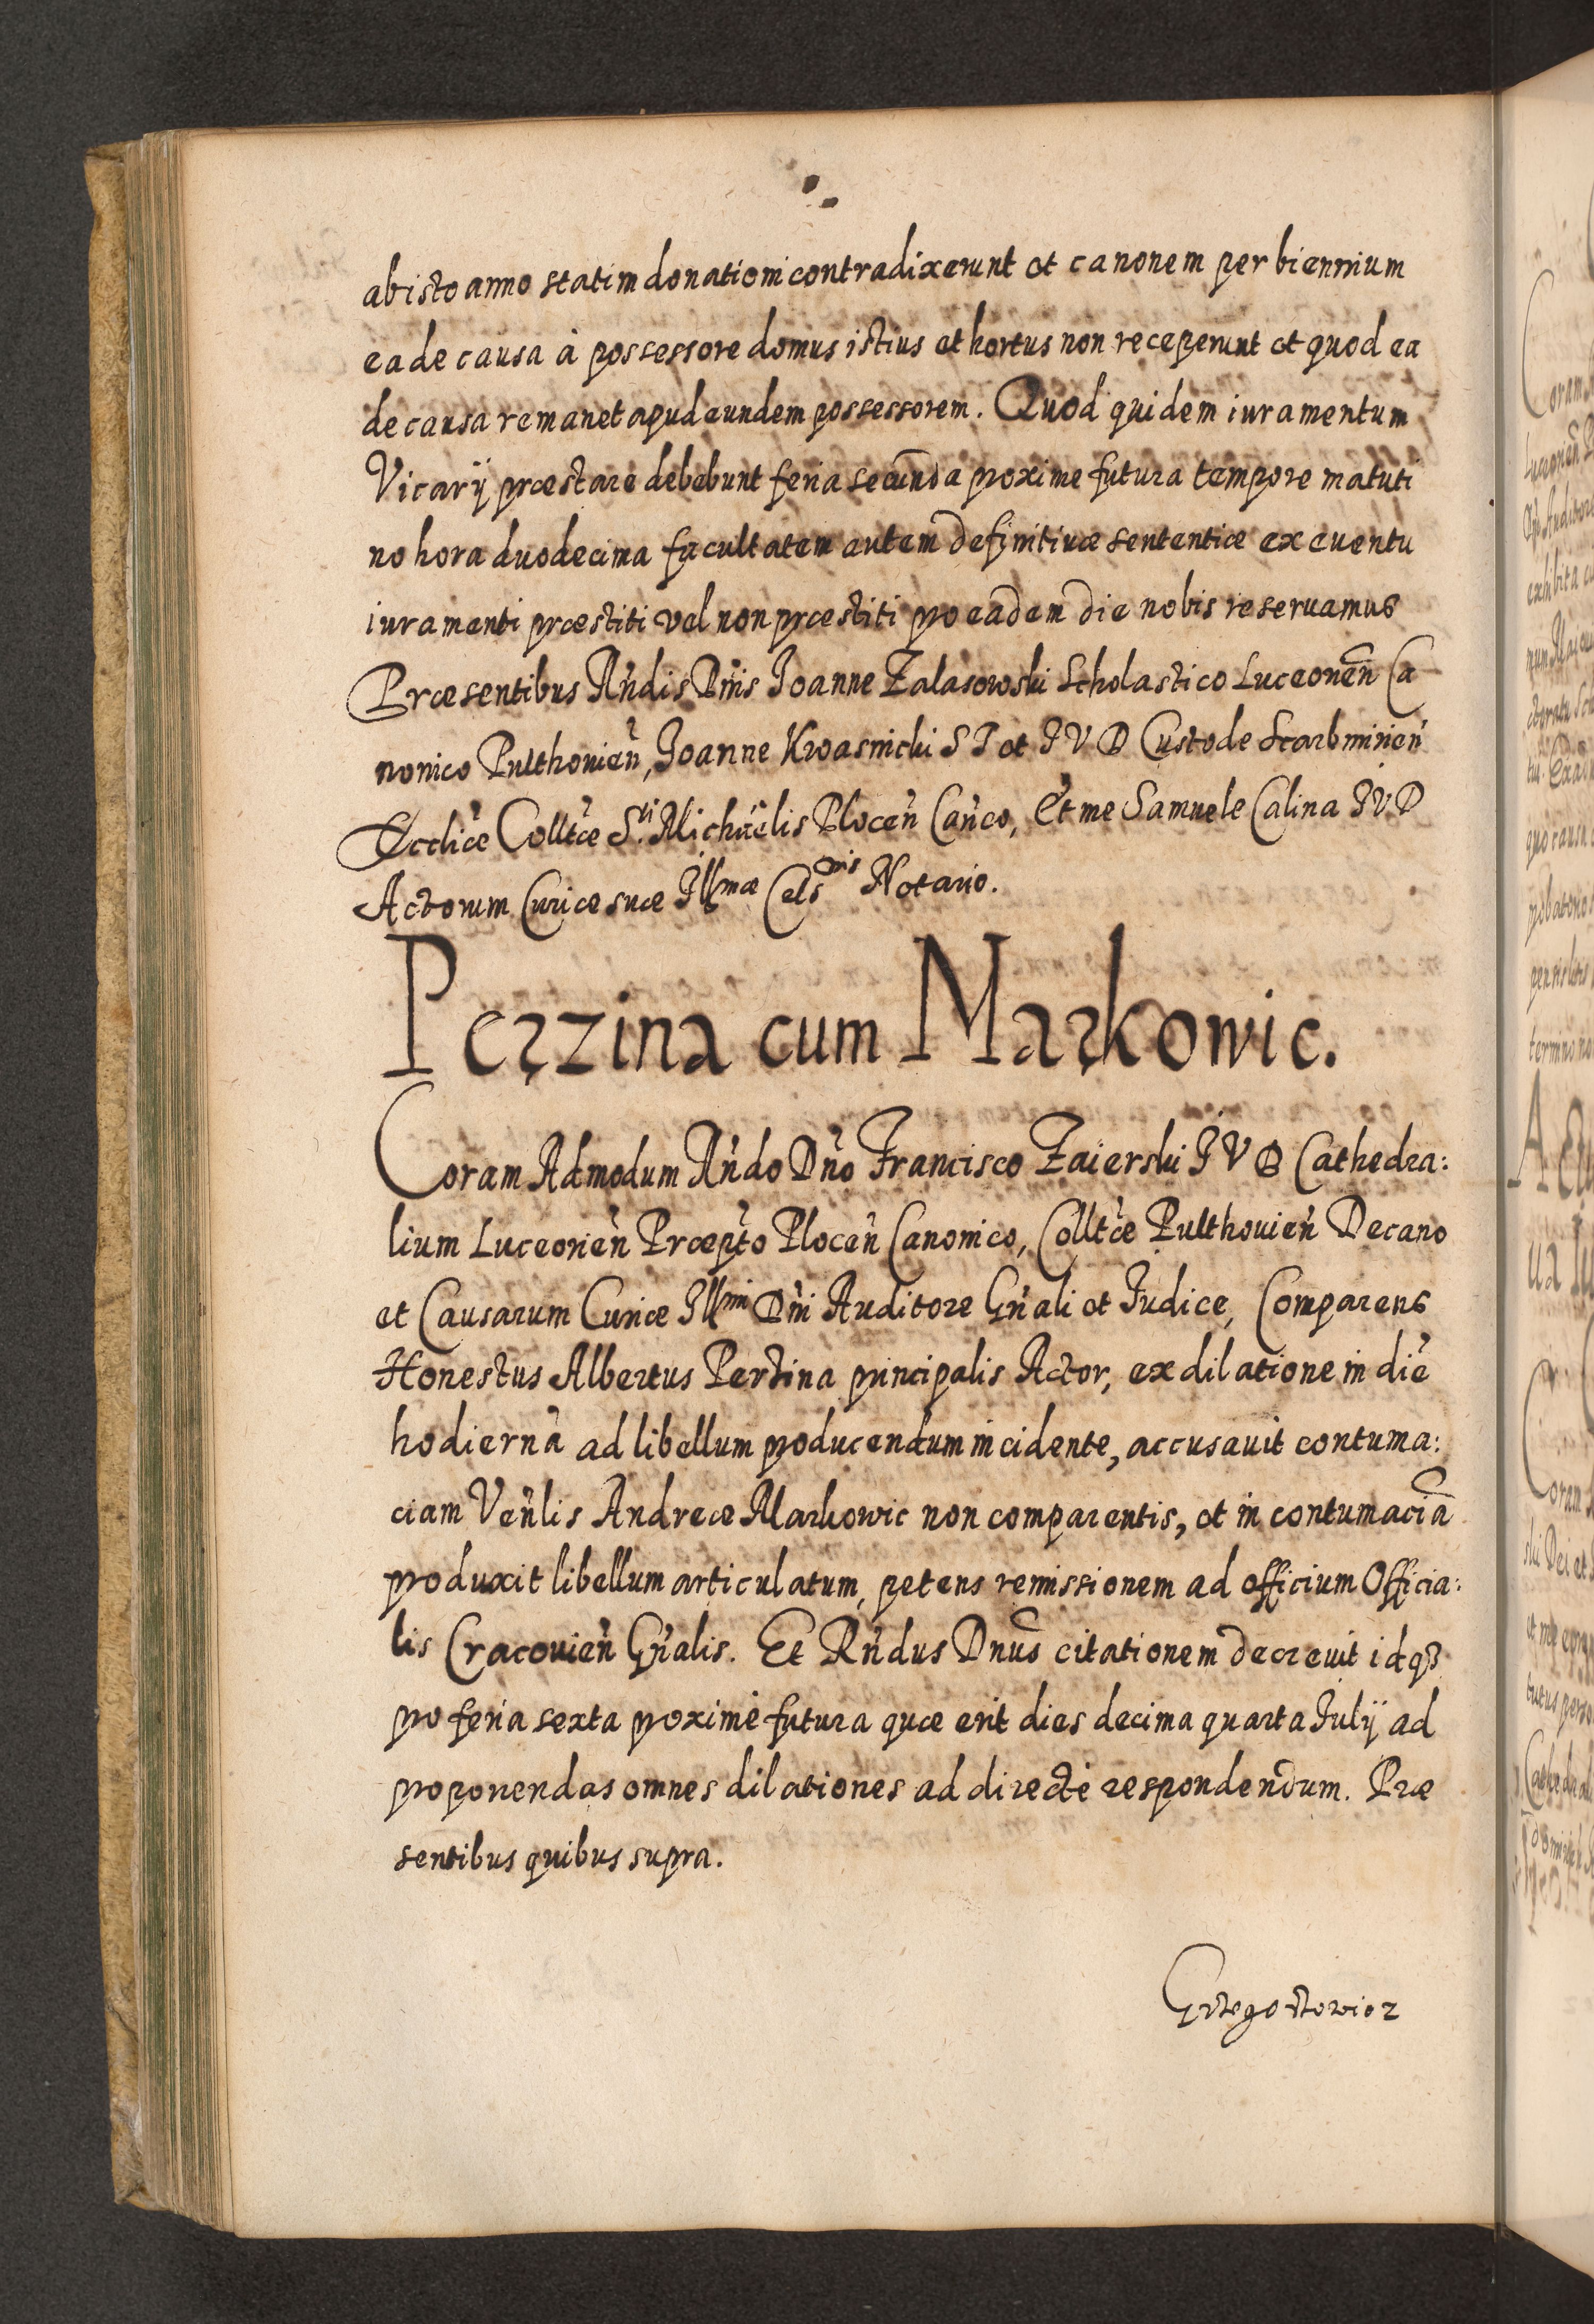 ab isto anno statim donationi contradixerunt et canonem per biennium
ea de causa à possessore domus istius et hortus non receperunt et quod ea
de causa remanet apud eundem possessorem. Quod quidem iuramentum
Vicarÿ præstare debebunt feria secunda proxime futura tempore matuti
no hora duodecima facultatem autem definitiuæ sententiæ ex euentu
iuramenti præstiti vel non præstiti pro eadem die nobis reseruamus
Præsentibus Rndis Dnis Joanne Zalasowski Scholastico Luceoneñ Ca
nonico Pulthouieñ, Joanne Kwasnicki S T et J V D Custode Scarbmirieñ
Eccliæ Colltæ S.ti Michaëlis Ploceñ Canco, Et me Samuele Calina J V D
Actorum Curiæ suæ Illmæ Celsnis Notario.
Perzina cum Markowic.
Coram Admodum Rndo Dño Francisco Zaierski J V D Cathedra:
lium Luceorieñ Præpto Ploceñ Canonico, Colltæ Pulthouieñ Decano
et Causarum Curiæ Illmi Dni Auditore Gñali et Judice, Comparens
Honestus Albertus Perzina principalis Actor, ex dilatione in diē
hodiernā ad libellum producendum incidente, accusauit contuma:
ciam Veñlis Andreæ Markowic non comparentis, et in contumaciā
produxit libellum articulatum, petens remissionem ad officium Officia:
lis Cracouieñ Gñalis. Et Rndus Dnus citationem decreuit idqꝫ
pro feria sexta proximè futura quæ erit dies decima quarta Julÿ ad
proponendas omnes dilationes ad directè respondendum. Præ
sentibus quibus supra.